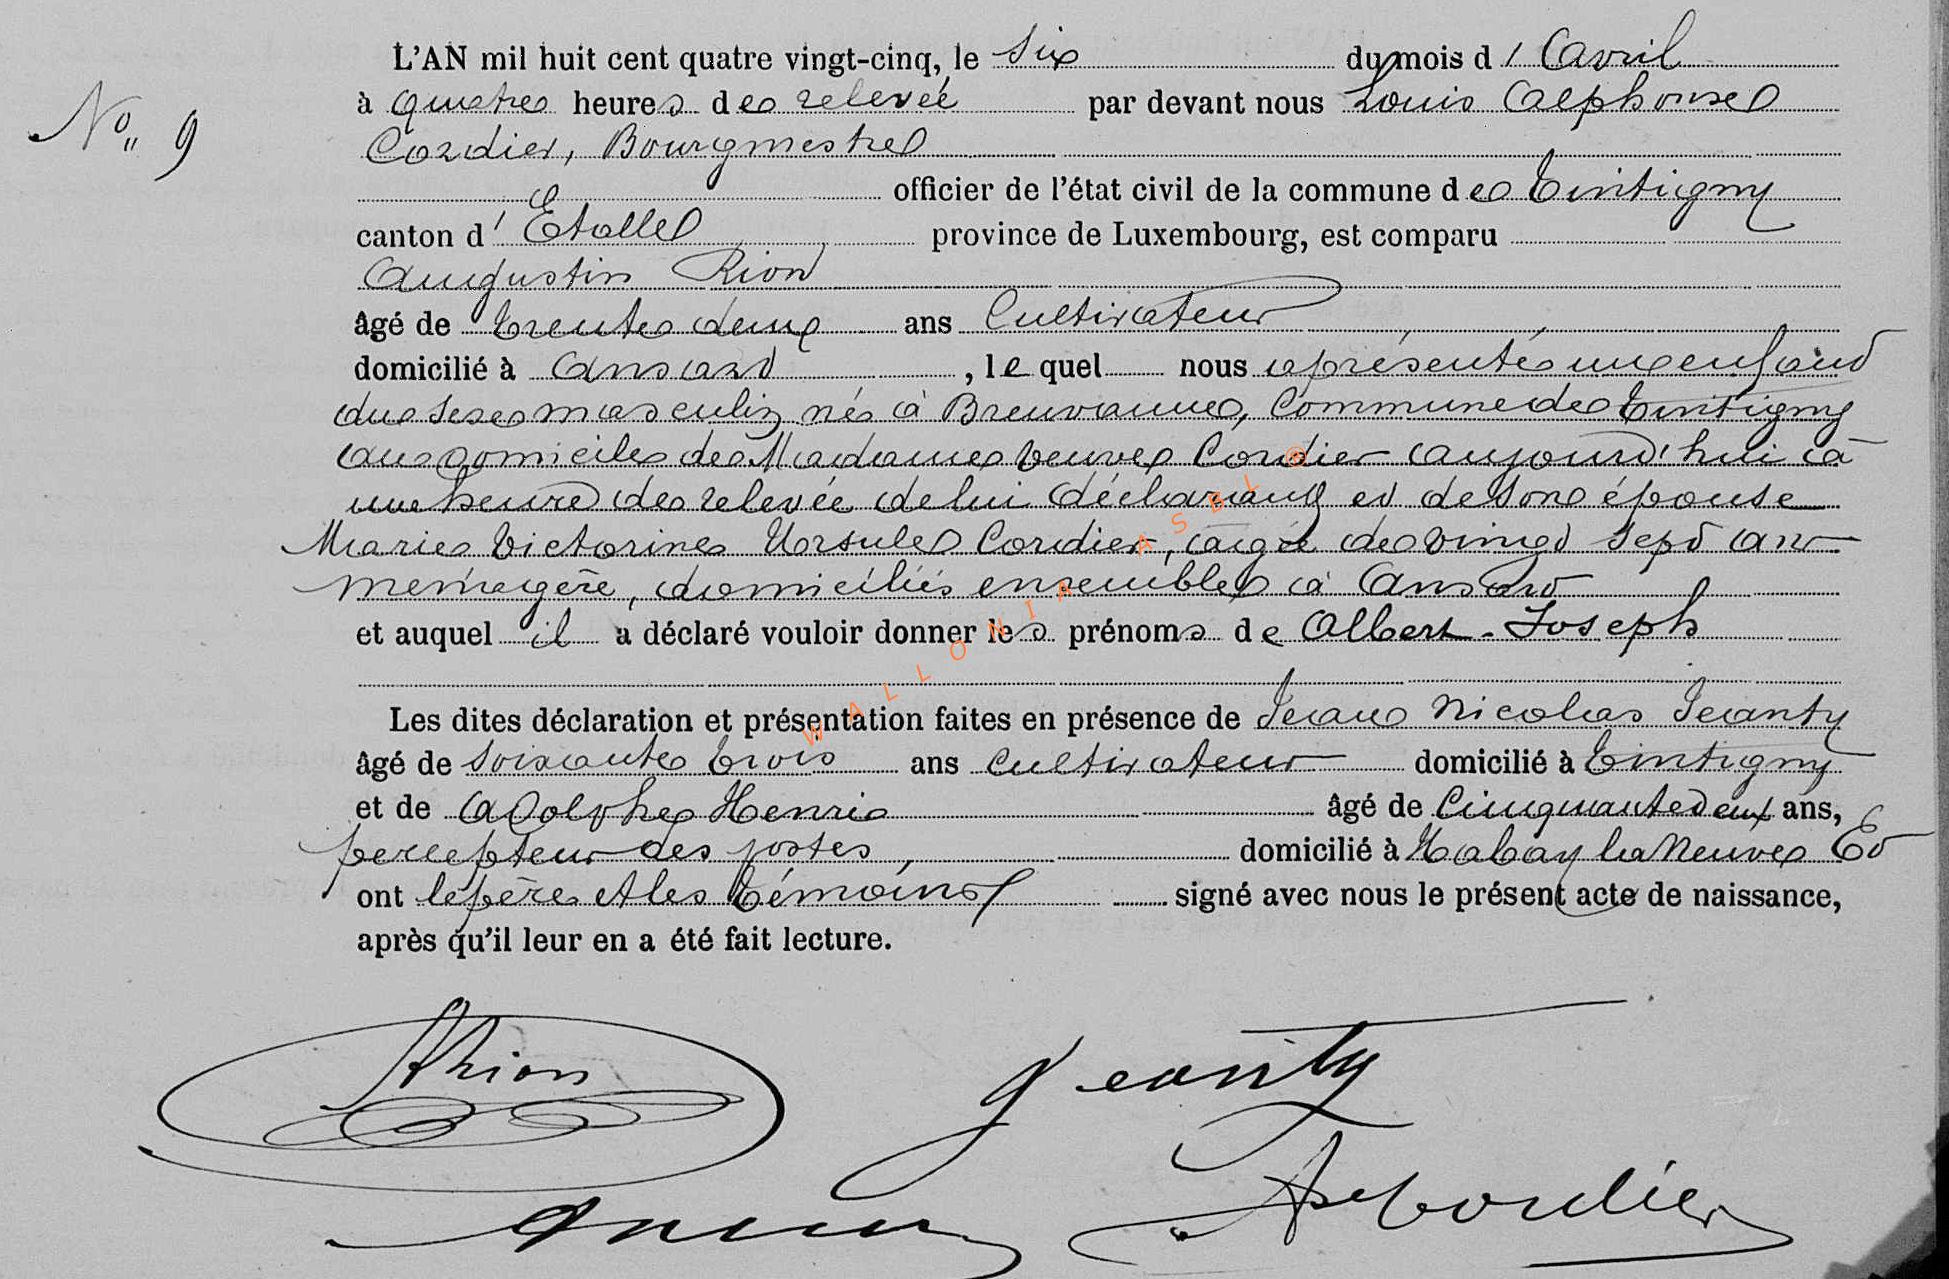 L'AN mil huit cent quatre vingt-cinq, le Six du mois d' Avril
No 9
à quatre heures de relevée par devant nous Louis Alphonse
Cordier, Bourgmestre
officier de l'état civil de la commune de Tintigny
canton d' Etalle province de Luxembourg, est comparu
Augustin Rion
âgé de trente deux ans Cultivateur
domicilié à Ansart, le quel nous a présenté un enfant
du sexe masculin né à Breuvanne, Commune de Tintigny
au domicile de Madame veuve Cordier aujourd'hui à
une heure de relevée de lui déclarant et de Son épouse
Marie Victorine Ursule Cordier, âgée de vingt Sept ans
ménagère, domiciliés ensemble à Ansart
et auquel il a déclaré vouloir donner les prénoms de Albert-Joseph
Les dites déclaration et présentation faites en présence de Jean Nicolas Jeanty
âgé de Soixante trois ans cultivateur domicilié à Tintigny
et de Adolphe Henri âgé de Cinquante deux ans,
percepteur des postes, domicilié à Habay la Neuve Et
ont le père et les témoins signé avec nous le présent acte de naissance,
après qu'il leur en a été fait lecture.
WALLONIA ASBL ®
ARion Jeanty
Cordier